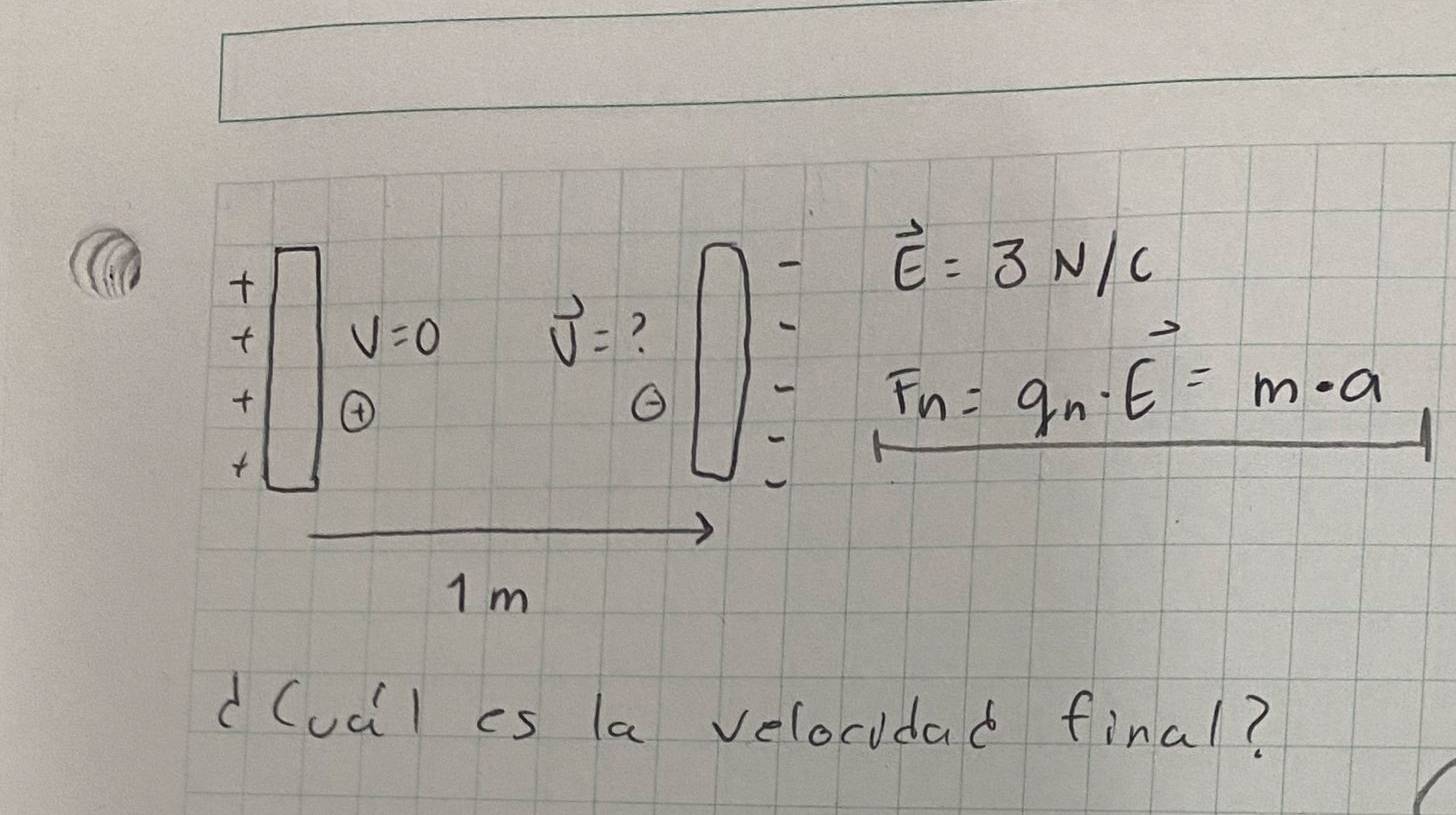 + - E⃗ = 3 N/C
+ V=0 V⃗=? -
+ ⊕ ⊖ - Fn = qn · E⃗ = m • a
+ - -
1 m
¿Cuál es la velocidad final?